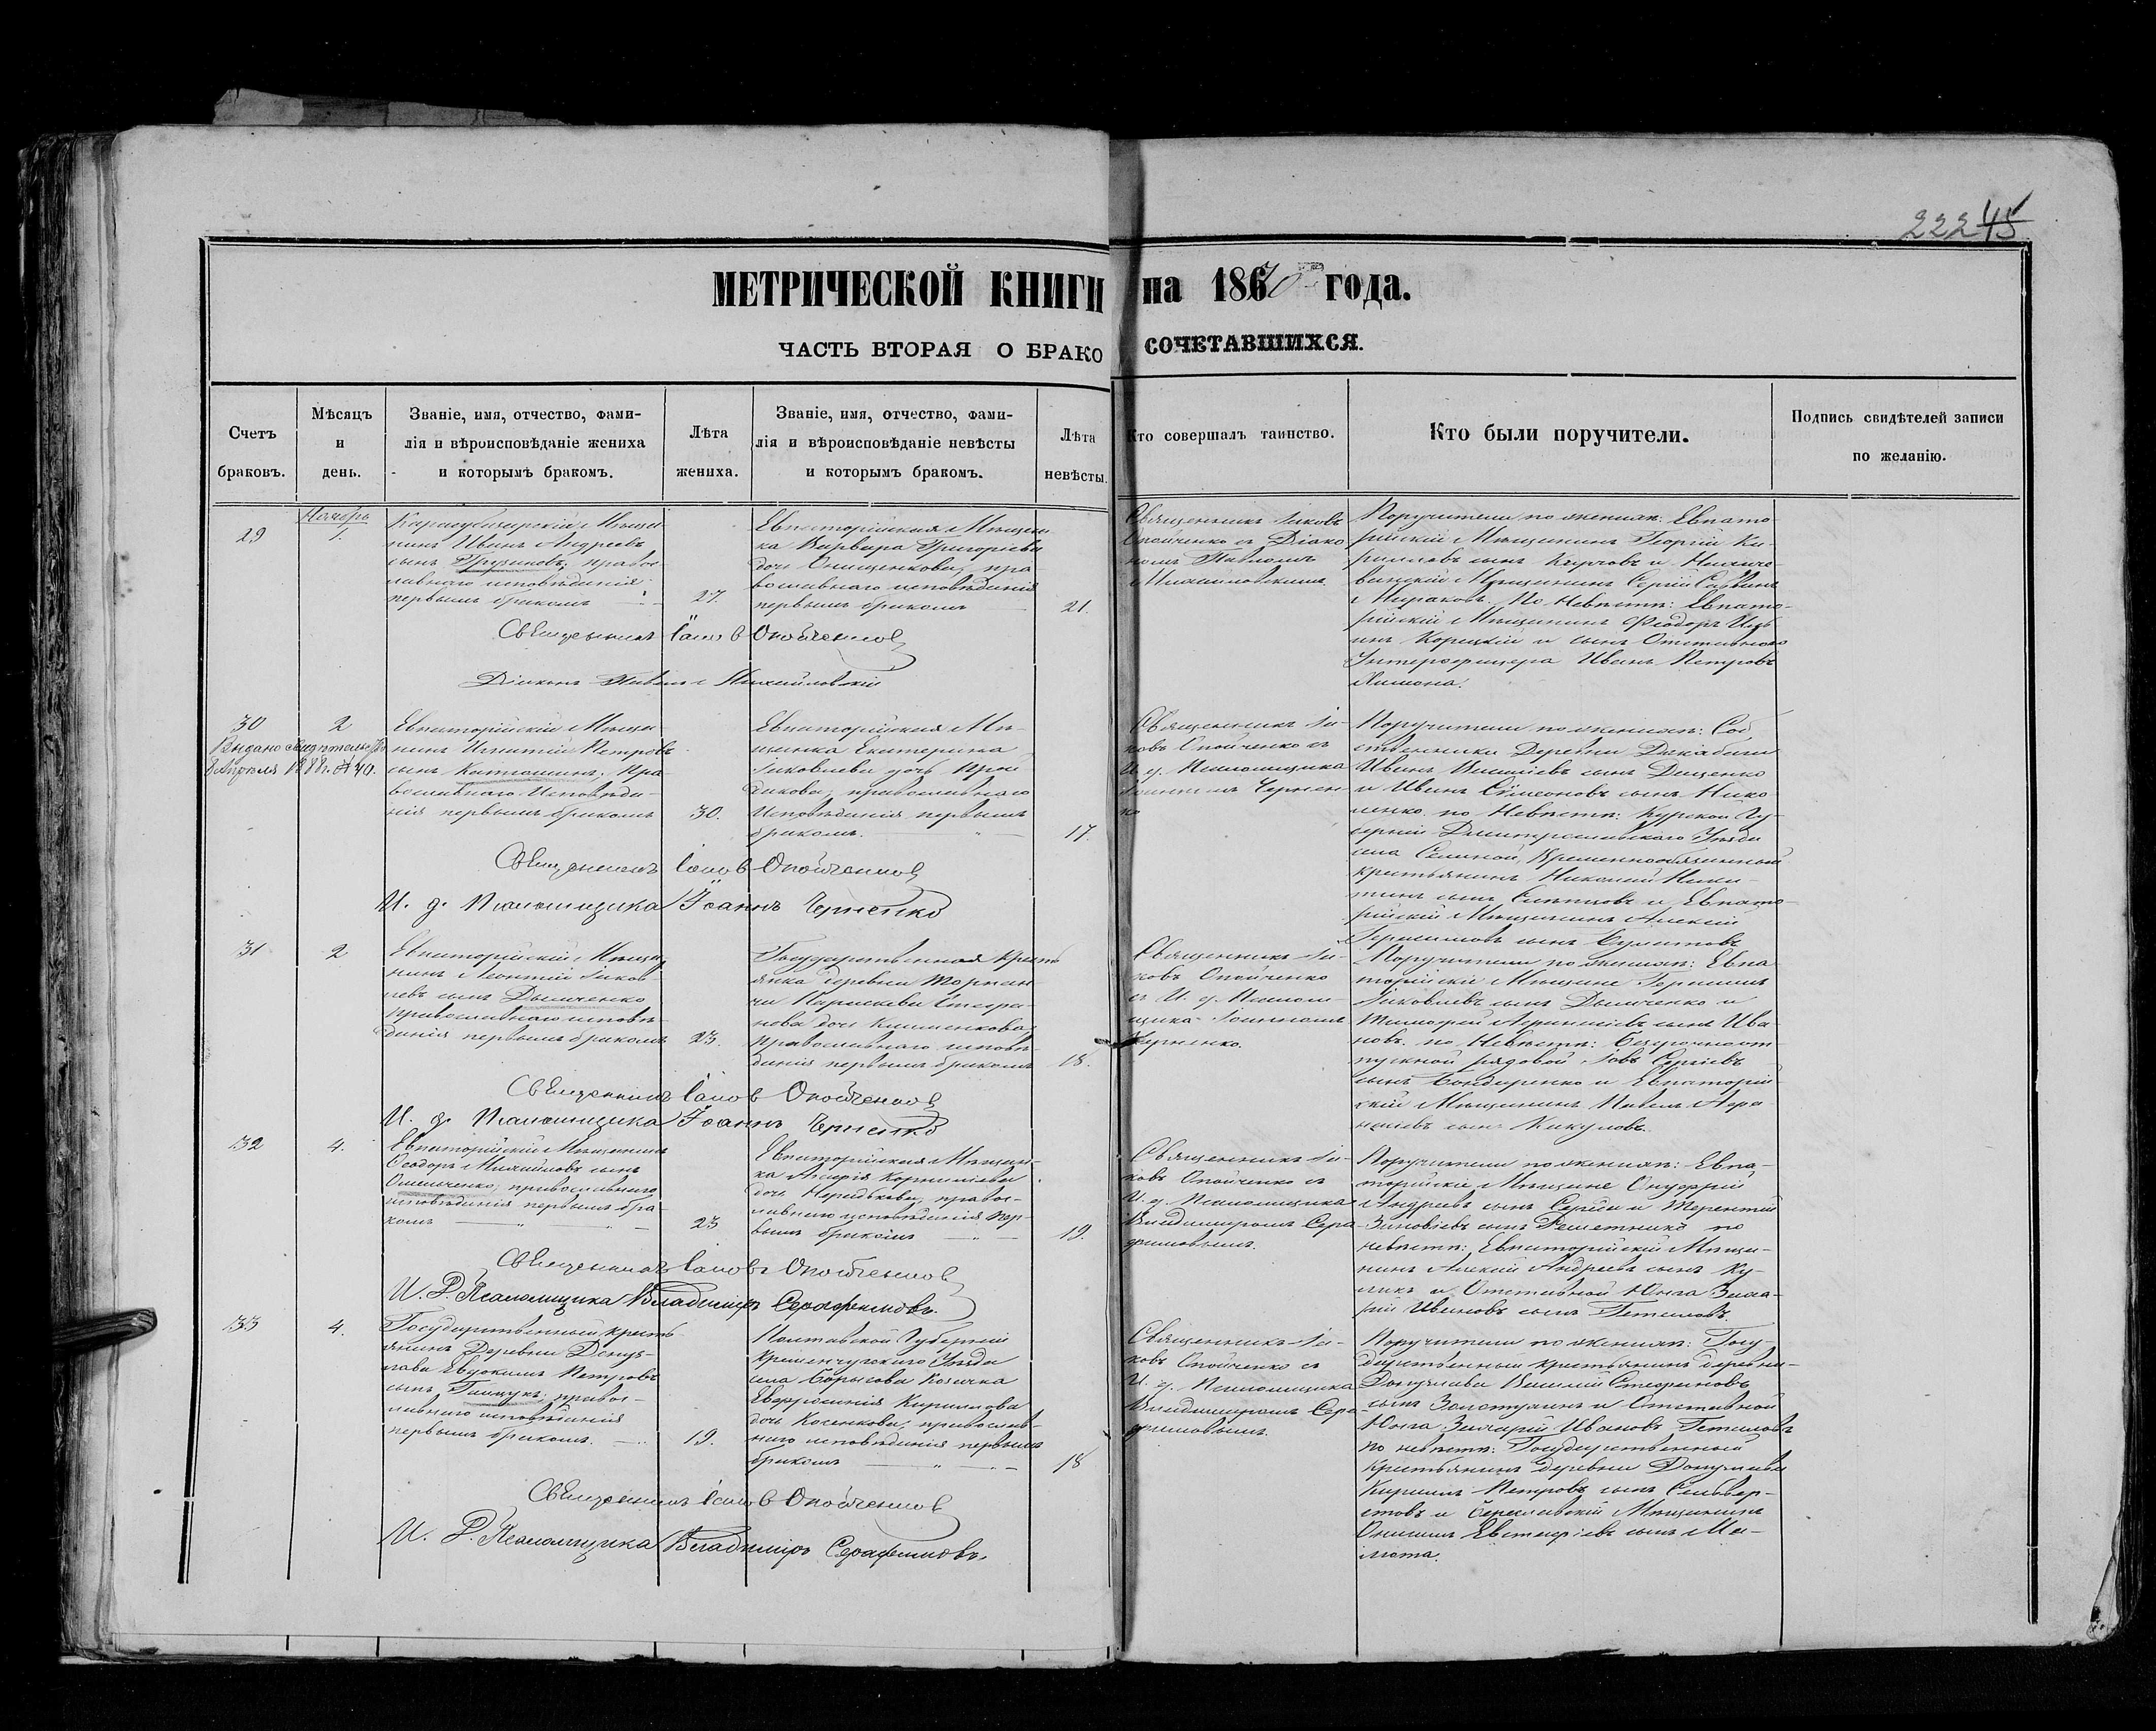 222 45
МЕТРИЧЕСКОЙ КНИГИ на 1870 года.
ЧАСТЬ ВТОРАЯ О БРАКОСОЧЕТАВШИХСЯ.
Счетъ
браковъ.
Мѣсяцъ
и
день.
Званіе, имя, отчество, фами-
лія и вѣроисповѣданіе жениха
и которымъ бракомъ.
Лѣта
жениха.
Званіе, имя, отчество, фами-
лія и вѣроисповѣданіе невѣсты
и которымъ бракомъ.
Лѣта
невѣсты.
Кто совершалъ таинство.
Кто были поручители.
Подпись свидѣтелей записи
по желанію.
29
Ноябрь
1.
Карасубазарскій Мѣща-
нинъ Иванъ Андреевъ
сынъ Грузиновъ, правос-
лавнаго исповѣданія
первымъ бракомъ
27.
Евпаторійская Мѣщан-
ка Варвара Григорьева
дочь Онищенкова, пра-
вославнаго исповѣданія
первымъ бракомъ
21.
Священникъ Іаковъ
Опойченко съ Діако-
номъ Павломъ
Михайловскимъ
Поручители по женихѣ: Евпато-
рійскій Мѣщанинъ Георгій Ки-
рилловъ сынъ
Мѣщанинъ Сергій
По Невѣстѣ: Евпато-
рійскій Мѣщанинъ Ѳеодоръ
Корецкій и сынъ Отставнаго
Унтерофицера Иванъ Петровъ
Священникъ Іаковъ Опойченко
Діаконъ Павелъ Михайловскій
30
2
Выдано свидѣтельство
8 Апрѣля 1888 г. № 40.
Евпаторійскій Мѣща-
нинъ Игнатій Петровъ
сынъ Катошинъ, Пра-
вославнаго Исповѣда-
нія первымъ бракомъ
30.
Евпаторійская Мѣ-
щанка Екатерина
Іаковлева дочь
православнаго
Исповѣданія первымъ
бракомъ.
17.
Священникъ Іа-
ковъ Опойченко съ
И. д. Псаломщика
Іоанномъ Чернен-
ко
Поручители по женихѣ: Соб-
ственники Деревни
Иванъ Васильевъ сынъ Деценко
и Иванъ Симеоновъ сынъ Нико-
ленко. по Невѣстѣ: Курской Гу-
берніи Дмитровскаго Уѣзда
села Временнообязанный
крестьянинъ Николай Ники-
тинъ сынъ и Евпато-
рійскій Мѣщанинъ Алексій
Герасимовъ сынъ
Священникъ Іаковъ Опойченко
И. д. Псаломщика Іоаннъ Черненко
31
2
Евпаторійскій Мѣща-
нинъ Леонтій Іаков-
левъ сынъ Дымченко
Православнаго исповѣ-
данія первымъ бракомъ
23.
Государственная Кресть-
янка деревни
Параскева Стефа-
нова дочь
Православнаго исповѣ-
данія первымъ бракомъ
18.
Священникъ Іа-
ковъ Опойченко
съ И. д. Псалом-
щика Іоанномъ
Черненко.
Поручители по женихѣ: Евпа-
торійскіе Мѣщане Герасимъ
Іаковлевъ сынъ Дымченко и
Тимофей сынъ Ива-
новъ. по Невѣстѣ: Безсрочноот-
пускной рядовой Іовъ Сергіевъ
сынъ Бондаренко и Евпаторій-
скій Мѣщанинъ Павелъ Афа-
насіевъ сынъ Кикуловъ.
Священникъ Іаковъ Опойченко
И. д. Псаломщика Іоаннъ Черненко
32
4.
Евпаторійскій Мѣщанинъ
Ѳеодоръ Михайловъ сынъ
Омельченко, православнаго
исповѣданія первымъ бра-
комъ
23
Евпаторійская Мѣщан-
ка Марія Корниліева
дочь правос-
лавнаго исповѣданія пер-
вымъ бракомъ
19.
Священникъ Іа-
ковъ Опойченко съ
И. д. Псаломщика
Владиміромъ Сера-
фимовымъ.
Поручители по женихѣ: Евпа-
торійскіе Мѣщане Онуфрій
Андреевъ сынъ Середа и Терентій
Зиновіевъ сынъ Решетника по
невѣстѣ: Евпаторійскій Мѣща-
нинъ Алексій Андреевъ сынъ Ку-
и Отставной Юнга Заха-
рій Ивановъ сынъ Гетмановъ.
Священникъ Іаковъ Опойченко
И. Д. Псаломщика Владиміръ Серафимовъ.
33
4.
Государственный кресть-
янинъ Деревни Донуз-
лава Евдокимъ Петровъ
сынъ правос-
лавнаго исповѣданія
первымъ бракомъ.
19.
Полтавской Губерніи
Кременчугскаго Уѣзда
села Борисова Козачка
Евфросинія Кириллова
дочь Косенкова, православ-
наго исповѣданія первымъ
бракомъ
18
Священникъ Іа-
ковъ Опойченко съ
И. д. Псаломщика
Владиміромъ Сера-
фимовымъ.
Поручители по женихѣ: Госу-
дарственный крестьянинъ деревни
Донузлава Василій Стефановъ
сынъ и Отставной
Юнга Захарій Ивановъ Гетмановъ
по невѣстѣ: Государственный
Крестьянинъ деревни Донузлава
Кириллъ Петровъ сынъ Сильвер-
стовъ и Бериславскій Мѣщанинъ
Онисимъ Евстафіевъ сынъ
Священникъ Іаковъ Опойченко
И. Д. Псаломщика Владиміръ Серафимовъ.